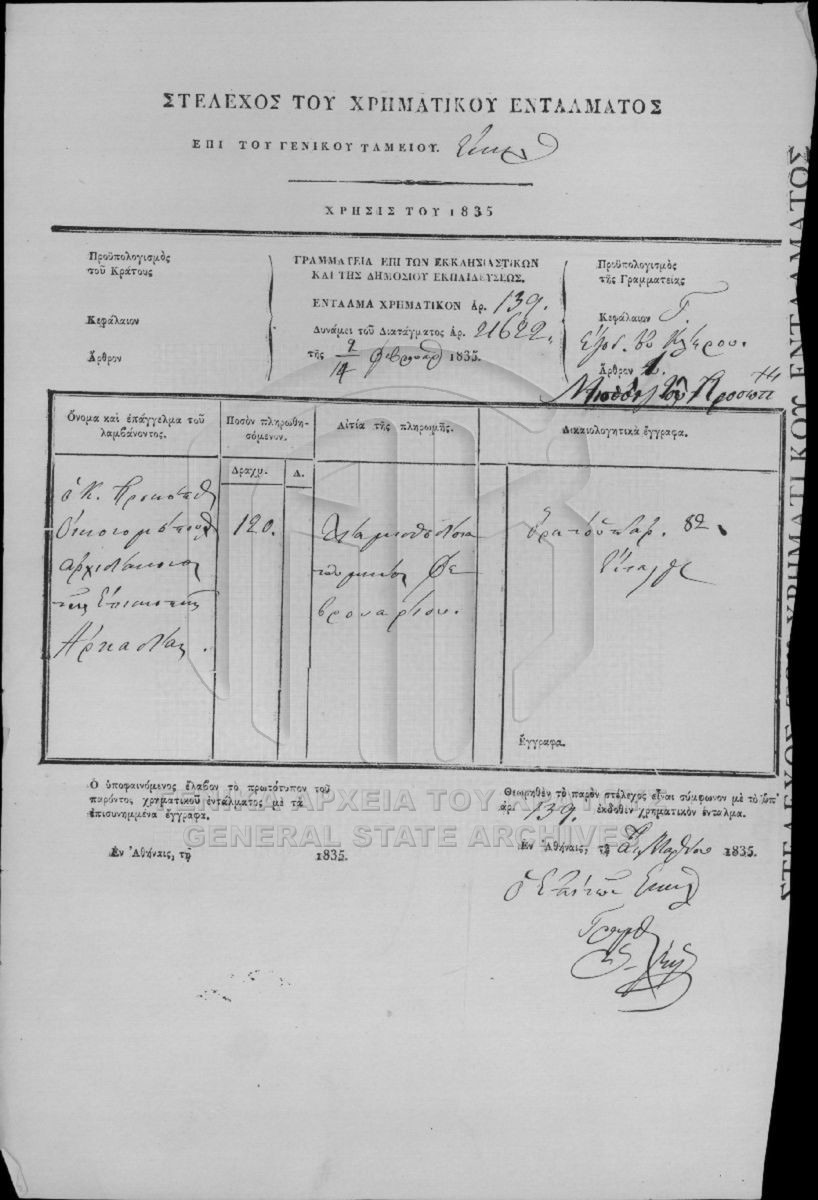 ΣΤΕΛΕΧΟΣ ΤΟΥ ΧΡΗΜΑΤΙΚΟΥ ΕΝΤΑΛΜΑΤΟΣ
ΕΠΙ ΤΟΥ ΓΕΝΙΚΟΥ ΤΑΜΕΙΟΥ.
ΧΡΗΣΙΣ ΤΟΥ 1835
Προϋπολογισμὸς
τοῦ Κράτους
Κεφάλαιον
Ἄρθρον
ΓΡΑΜΜΑΤΕΙΑ ΕΠΙ ΤΩΝ ΕΚΚΛΗΣΙΑΣΤΙΚΩΝ
ΚΑΙ ΤΗΣ ΔΗΜΟΣΙΟΥ ΕΚΠΑΙΔΕΥΣΕΩΣ.
ΕΝΤΑΛΜΑ ΧΡΗΜΑΤΙΚΟΝ Ἀρ. 139.
Δυνάμει τοῦ Διατάγματος Ἀρ. 21622.
τῆς 2/14 φεβρουαρ 1835.
Προϋπολογισμὸς
τῆς Γραμματείας
Κεφάλαιον Γ.
Ἔξοδ. τοῦ Κλήρου.
Ἄρθρον 1.
Ὄνομα καὶ ἐπάγγελμα τοῦ
λαμβάνοντος.
Ποσὸν πληρωθη-
σόμενον.
Αἰτία τῆς πληρωμῆς.
Δικαιολογητικὰ ἔγγραφα.
Δραχμ. Λ.
ὁ Κ.
120.
ἀρχιδιάκονος
τῆς Ἐπισκοπῆς
Ἀρκαδίας.
διὰ μισθοδοσία
τοῦ μηνὸς Φε
βρουαρίου.
82
Ἔγγραφα.
Ο ὑποφαινόμενος ἔλαβον τὸ πρωτότυπον τοῦ
παρόντος χρηματικοῦ ἐντάλματος μὲ τὰ
ἐπισυνημμένα ἔγγραφα.
Ἐν Ἀθήναις, τῇ 1835.
Θεωρηθὲν τὸ παρὸν στέλεχος εἶναι σύμφωνον μὲ τὸ ὑπ'
ἀρ. 139. ἐκδοθὲν χρηματικὸν ἔνταλμα.
Ἐν Ἀθήναις, τῇ Μαρτίου 1835.
ὁ ἐπὶ τῶν Ἐκκλ
Γραμμ
ΓΕΝΙΚΑ ΑΡΧΕΙΑ ΤΟΥ ΚΡΑΤΟΥΣ
GENERAL STATE ARCHIVES
ΣΤΕΛΕΧΟΣ ΤΟΥ ΧΡΗΜΑΤΙΚΟΥ ΕΝΤΑΛΜΑΤΟΣ